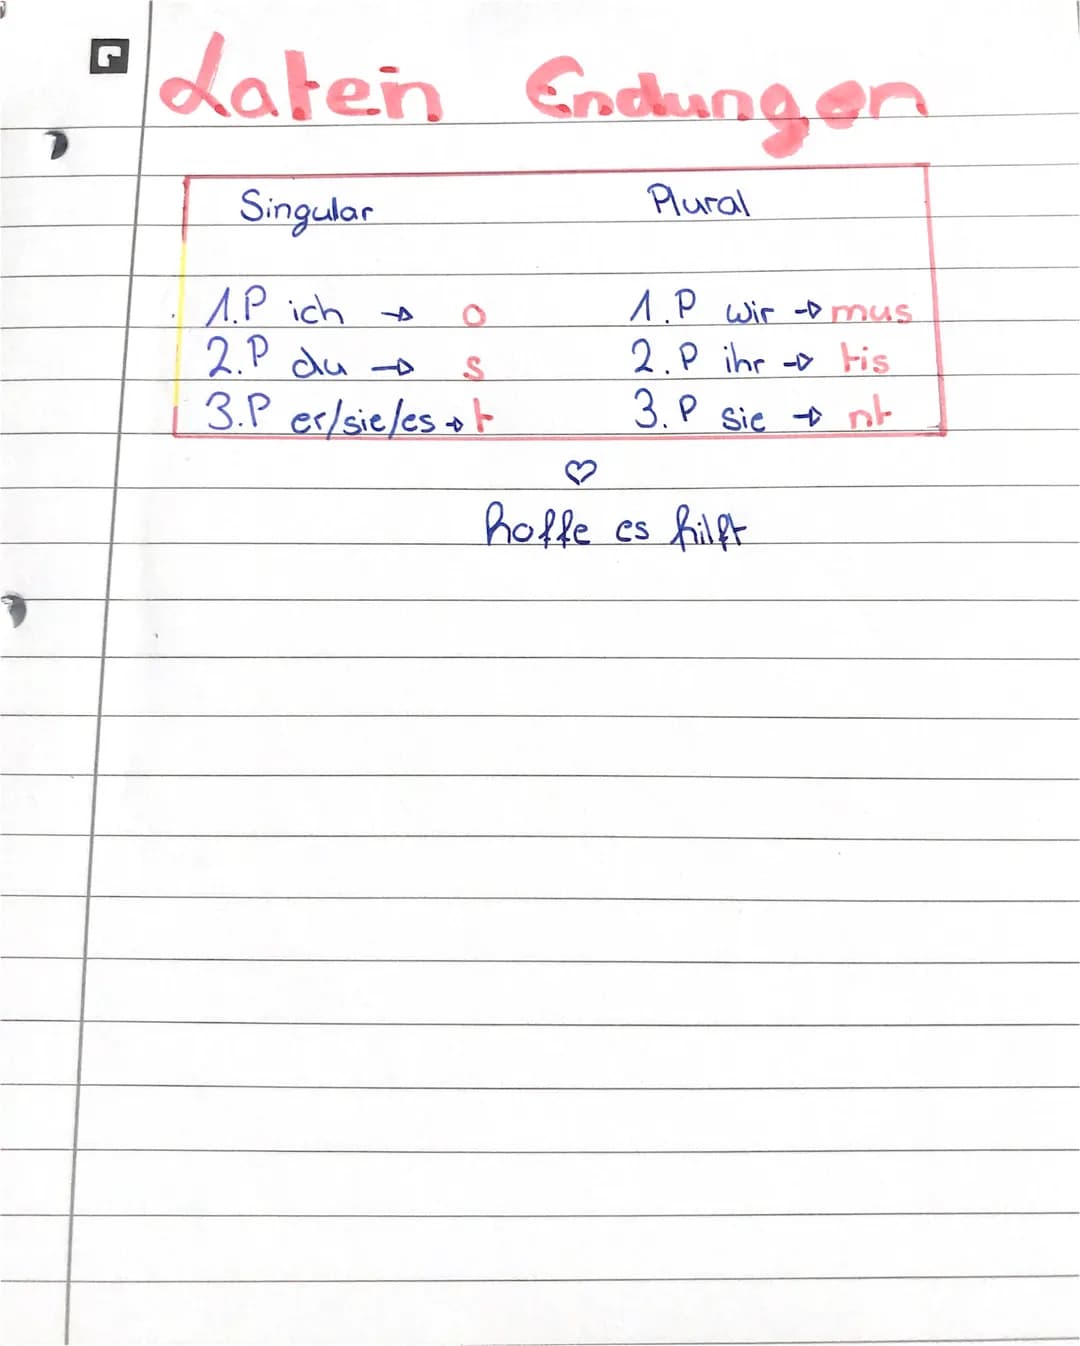 Latein Endungen
Singular Plural
1.P ich → o 1.P wir → mus
2.P du → s 2.P ihr → tis
3.P er/sie/es → t 3.P sie → nt
♡
hoffe es hilft